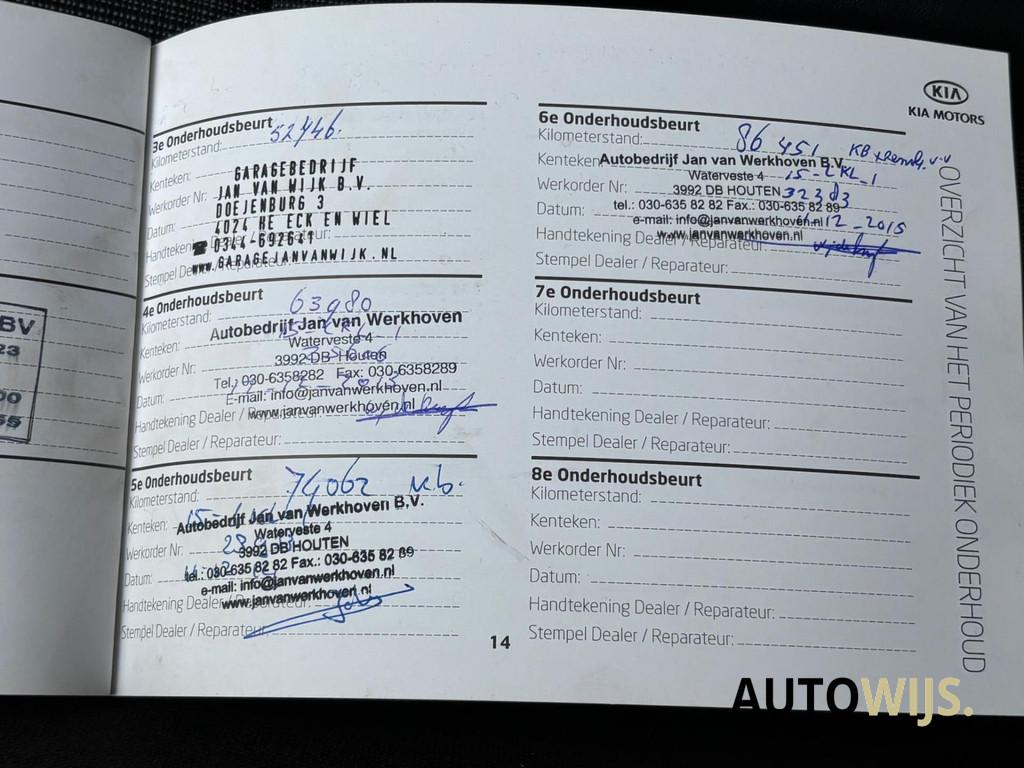 BV
23
00
59
3e Onderhoudsbeurt
Kilometerstand: 52446.
Kenteken:
Werkorder Nr:
Datum:
Handtekening
Stempel Dealer / Reparateur:
GARAGEBEDRIJF
JAN VAN WIJK B.V.
DOEJENBURG 3
4024 HE ECK EN WIEL
☎ 0344-692641
www.GARAGEJANVANWIJK.NL
4e Onderhoudsbeurt
Kilometerstand: 63980
Kenteken:
Werkorder Nr:
Datum:
Handtekening Dealer / Reparateur:
Stempel Dealer / Reparateur:
Autobedrijf Jan van Werkhoven
Waterveste 4
3992 DB Houten
Tel.: 030-6358282 Fax: 030-6358289
E-mail: info@janvanwerkhoven.nl
www.janvanwerkhoven.nl
5e Onderhoudsbeurt
Kilometerstand: 74062
Kenteken:
Werkorder Nr:
Datum:
Handtekening Dealer / Reparateur:
Stempel Dealer / Reparateur:
Autobedrijf Jan van Werkhoven B.V.
Waterveste 4
3992 DB HOUTEN
tel.: 030-635 82 82 Fax.: 030-635 82 89
e-mail: info@janvanwerkhoven.nl
www.janvanwerkhoven.nl
14
KIA
KIA MOTORS
6e Onderhoudsbeurt
Kilometerstand: 86 451
Kenteken: 15-ZKL-1
Werkorder Nr: 32383
Datum: 12-2015
Handtekening Dealer / Reparateur:
Stempel Dealer / Reparateur:
Autobedrijf Jan van Werkhoven B.V.
Waterveste 4
3992 DB HOUTEN
tel.: 030-635 82 82 Fax.: 030-635 82 89
e-mail: info@janvanwerkhoven.nl
www.janvanwerkhoven.nl
7e Onderhoudsbeurt
Kilometerstand:
Kenteken:
Werkorder Nr:
Datum:
Handtekening Dealer / Reparateur:
Stempel Dealer / Reparateur:
8e Onderhoudsbeurt
Kilometerstand:
Kenteken:
Werkorder Nr:
Datum:
Handtekening Dealer / Reparateur:
Stempel Dealer / Reparateur:
OVERZICHT VAN HET PERIODIEK ONDERHOUD
AUTOWIJS.